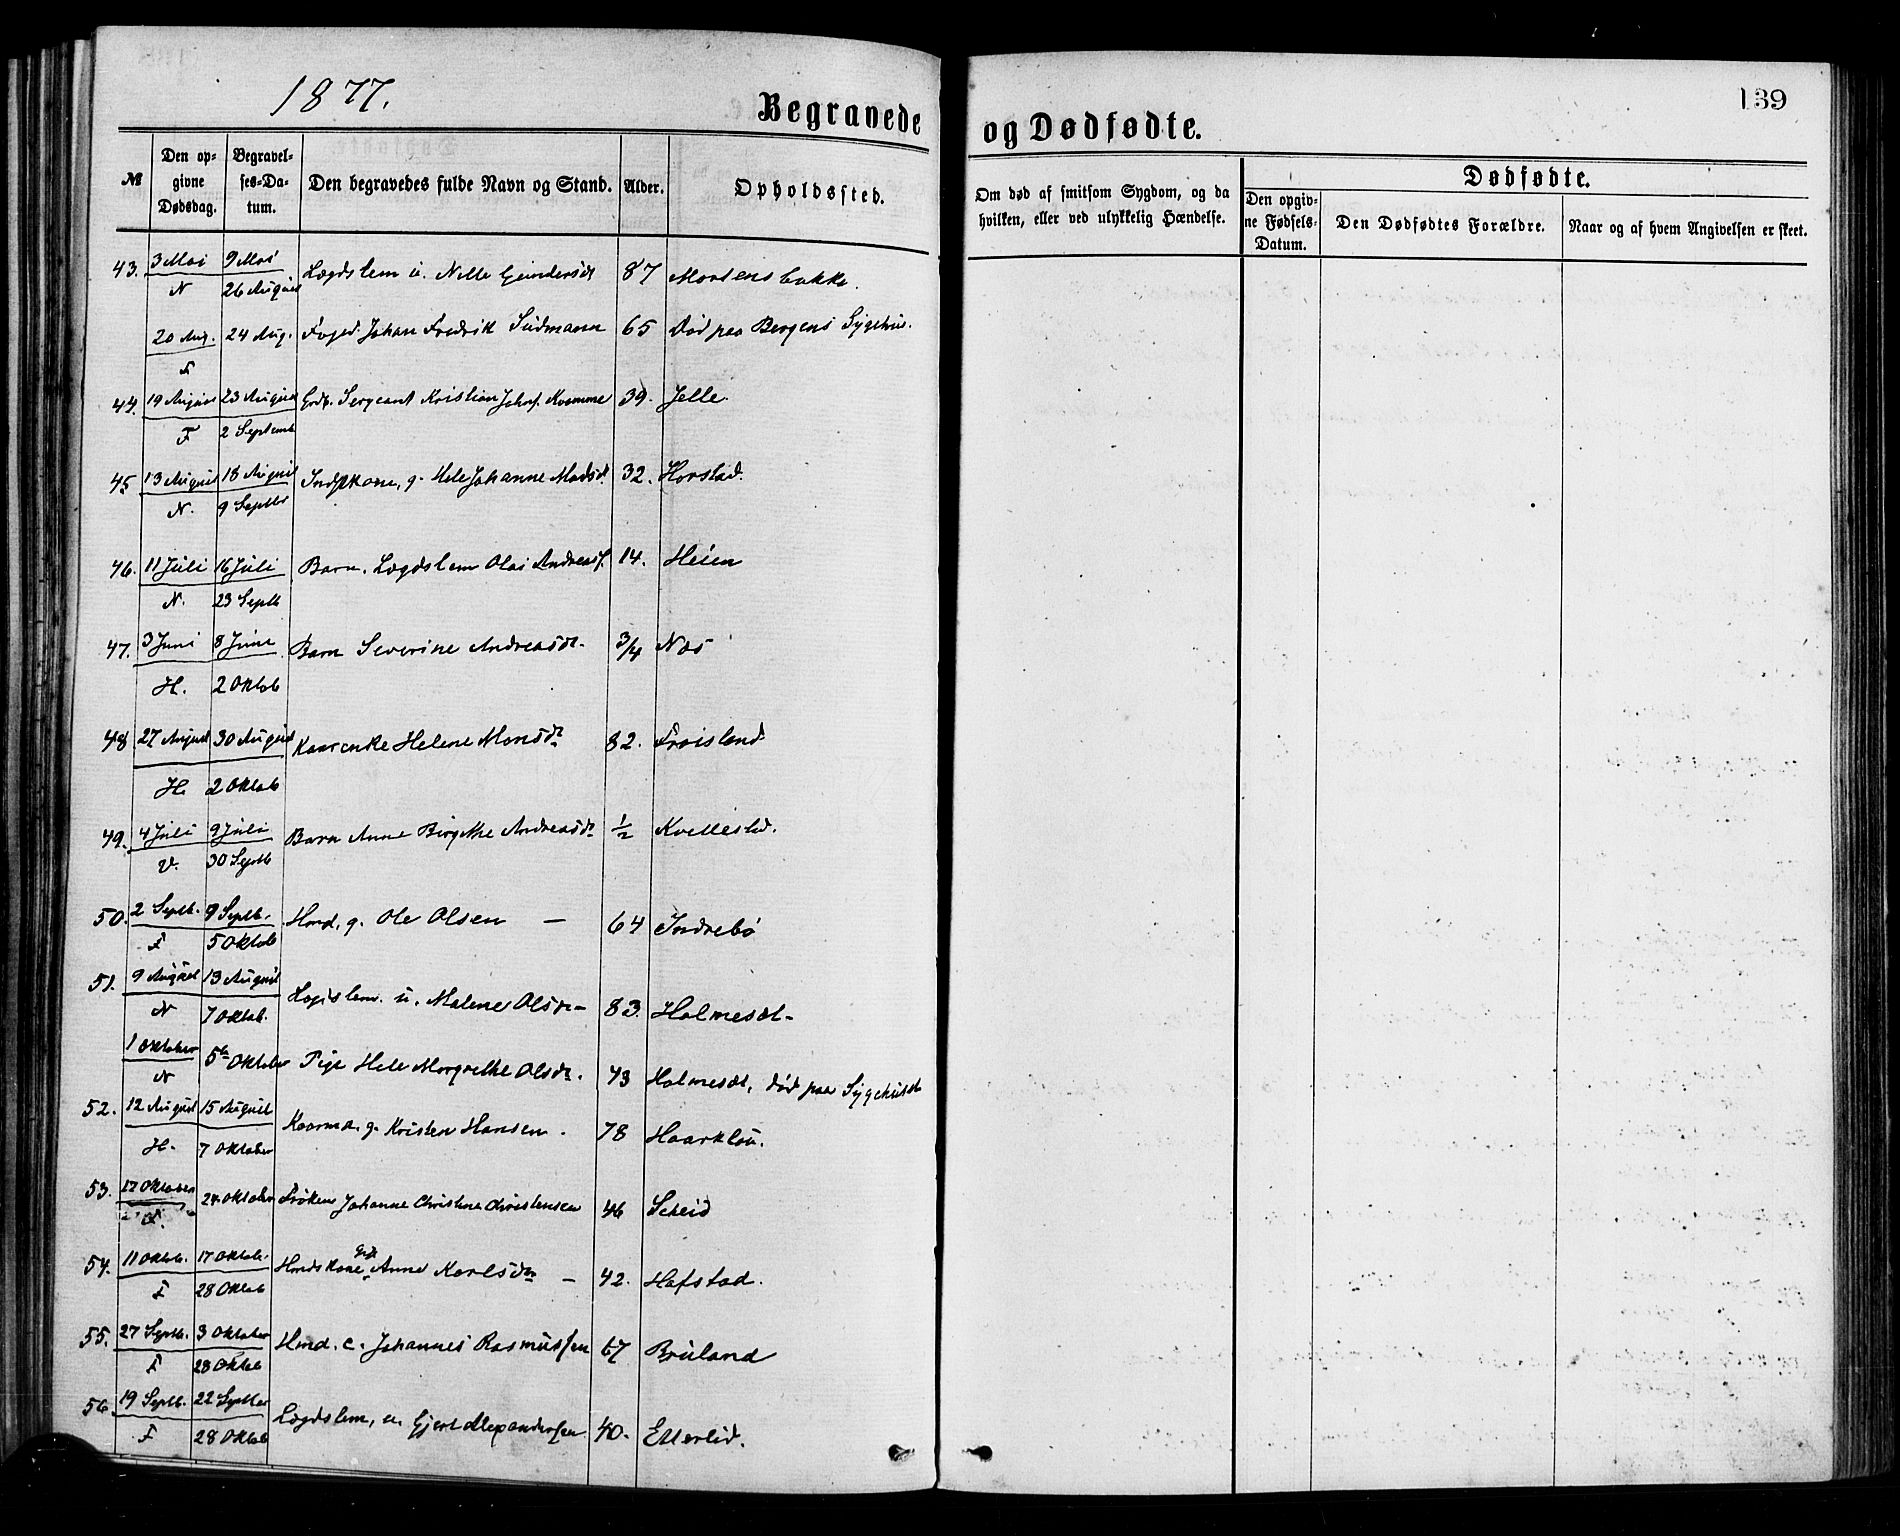 1877.
Begravede
№
Den opgivne Dødsdag.
Begravelses-Datum.
Den begravedes fulde Navn og Stand.
Alder.
Opholdssted.
43. 3 Mai 9 Mai Lægdslem u. Nille Gundersdt 87 Mortensbakke.
N 26 August
20 Aug. 24 Aug. Foged Johan Fredrik Sudmann 65 Død paa Bergens Sygehus.
F
44. 19 August 23 August Grdb. Sergeant Kristian Johns. Kvamme 39. Jelle.
F 2 Septemb
45 13 August 18 August Indstkone, g. Hele Johanne Madsdt 32. Horstad.
N. 9 Septbr
46. 11 Juli 16 Juli Barn. Lægdslem Olai Andreass. 14. Heien
N. 23 Septb
47. 3 Juni 8 Juni Barn Severine Andreasdt. 3/4 Næs
H. 2 Oktob
48 27 August 30 August Kaarenke Helene Monsdt 82. Frøisland
H. 2 Oktob
49. 4 Juli 9 Juli Barn Anne Birgitte Andreasdt 1/2 Kvellestad.
V. 30 Septb
50. 2 Septb. 9 Septb. Hmd. g. Ole Olsen — 64 Indrebø
F 5 Oktob
51. 9 August 13 August Lægdslem. u. Malene Olsdt – 83. Holmesæt –
N 7 Oktob.
1 Oktober 5te Oktober Pige Hele Margrethe Olsdt. 43 Holmesæt, død paa Sygehuset
N
52. 12 August 15 August Kaarmd. g. Kristen Hansen. 78 Haarklau.
H. 7 Oktober
53. 17 Oktober 24 Oktober Frøken Johanne Christine Christensen 46 Scheid
F.
54. 11 Oktob. 17 Oktob. Hmdskone Anne Karlsdt – 42. Hafstad.
F 28 Oktob
55. 27 Septb. 3 Oktober Hmd. e. Johannes Rasmussen 67 Bruland
F 28 Oktob
56. 19 Septb. 22 Septber Lægdslem, u. Gjert Alexandersen 40. Etterlid.
F 28 Oktob
139
og Dødfødte.
Om død af smitsom Sygdom, og da
hvilken, eller ved ulykkelig Hændelse.
Dødfødte.
Den opgivne Fødsels-Datum.
Den Dødfødtes Forældre.
Naar og af hvem Angivelsen er skeet.